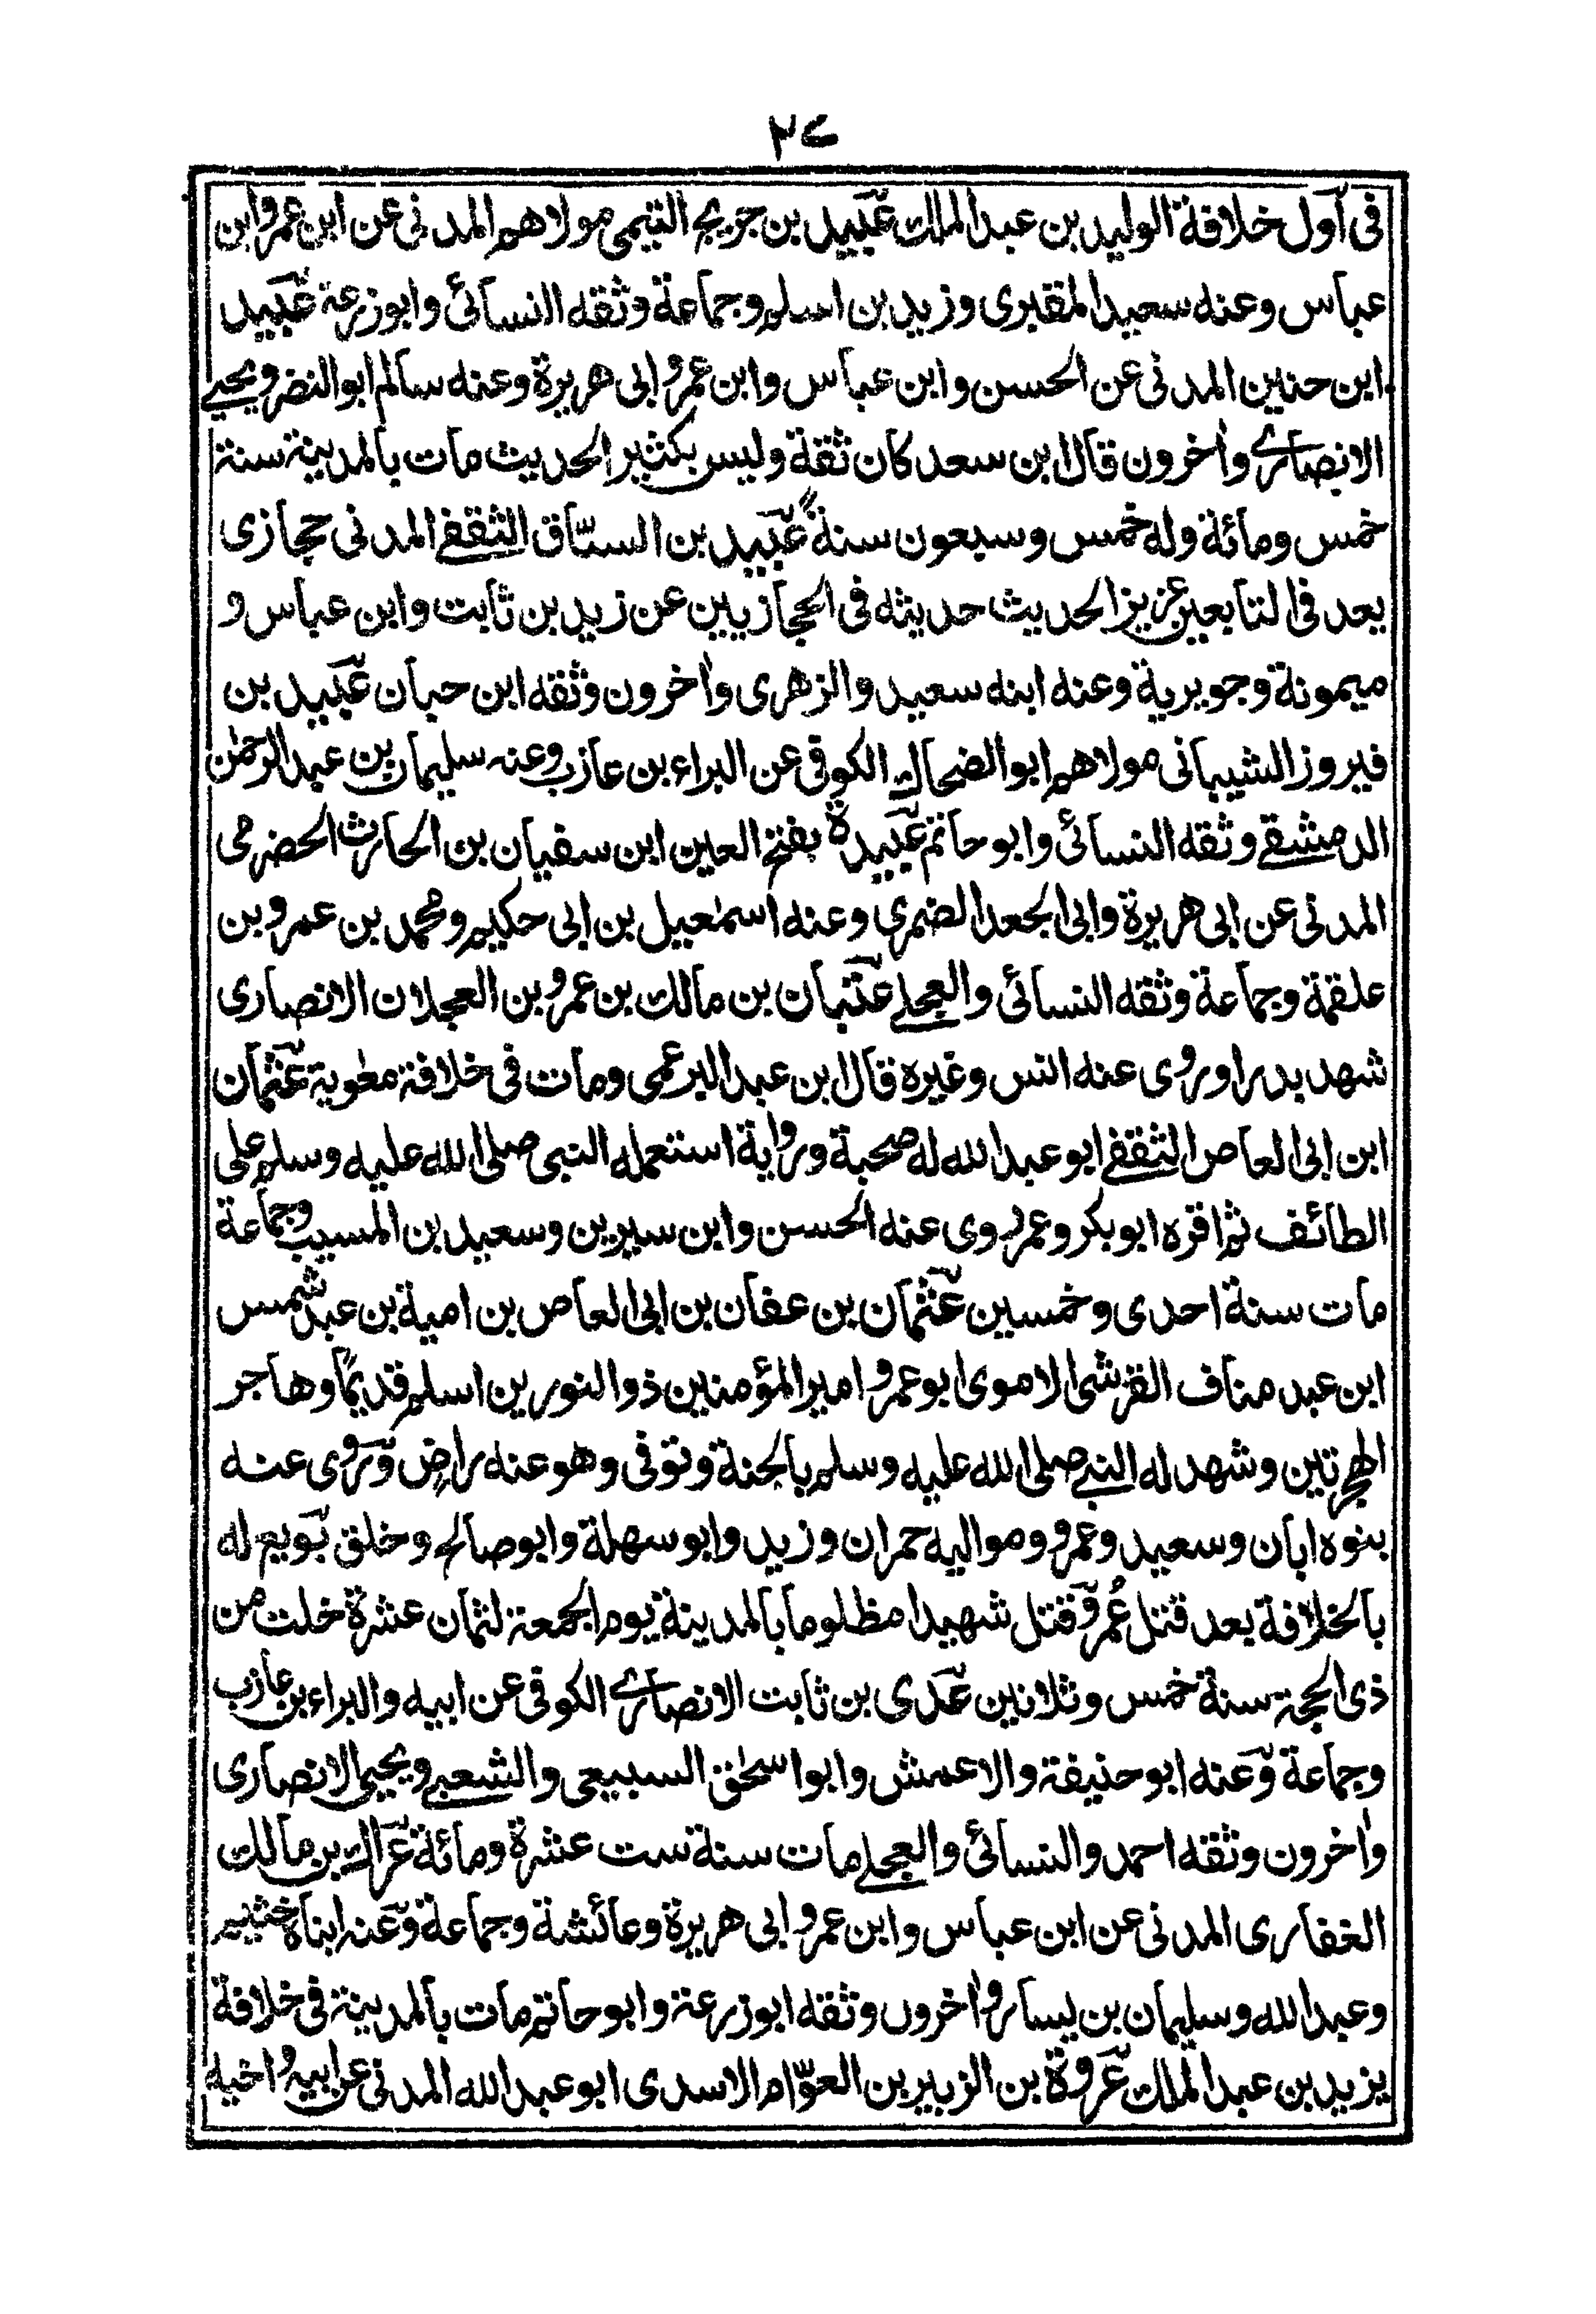 ٢٧
فى أول خلافة الوليد بن عبد الملك عبيد بن جريج التيمى مولاهم المدنى عن ابن عمر وابن
عباس وعنه سعيد المقبرى وزيد بن اسلم وجماعة وثقه النسائى وابو زرعة عبيد
ابن حنين المدنى عن الحسن وابن عباس وابن عمر وابى هريرة وعنه سالم ابو النضر ويحيى
الانصارى واٰخرون قال ابن سعد كان ثقة وليس بكثير الحديث مات بالمدينة سنة
خمس ومائة وله خمس وسبعون سنة عبيد بن السباق الثقفى المدنى حجازى
يعد فى التابعين عزيز الحديث حديثه فى الحجازيين عن زيد بن ثابت وابن عباس و
ميمونة وجويرية وعنه ابنه سعيد والزهرى واٰخرون وثقه ابن حبان عبيد بن
فيروز الشيبانى مولاهم ابو الضحاك الكوفى عن البراء بن عازب وعنه سليمان بن عبد الرحمٰن
الدمشقى وثقه النسائى وابو حاتم عبيدة بفتح العين ابن سفيان بن الحارث الحضرمى
المدنى عن ابى هريرة وابى الجعد الضمرى وعنه اسمٰعيل بن ابى حكيم ومحمد بن عمرو بن
علقمة وجماعة وثقه النسائى والعجلى عتبان بن مالك بن عمرو بن العجلان الانصارى
شهد بدرا وروى عنه انس وغيره قال ابن عبد البر عمى ومات فى خلافة معٰوية عثمان
ابن ابى العاص الثقفى ابو عبد الله له صحبة ورواية استعمله النبى صلى الله عليه وسلم على
الطائف ثم اقره ابو بكر وعمر روى عنه الحسن وابن سيرين وسعيد بن المسيب وجماعة
مات سنة احدى وخمسين عثمان بن عفان بن ابى العاص بن امية بن عبد شمس
ابن عبد مناف القرشى الاموى ابو عمرو امير المؤمنين ذو النورين اسلم قديمًا وهاجر
الهجرتين وشهد له النبى صلى الله عليه وسلم بالجنة وتوفى وهو عنه راضٍ وروى عنه
بنوه ابان وسعيد وعمرو ومواليه حمران وزيد وابو سهلة وابو صالح وخلق بويع له
بالخلافة بعد قتل عُمر وقتل شهيدا مظلوما بالمدينة يوم الجمعة لثمان عشرة خلت من
ذى الحجة سنة خمس وثلاثين عدى بن ثابت الانصارى الكوفى عن ابيه والبراء بن عازب
وجماعة وعنه ابو حنيفة والاعمش وابو اسحٰق السبيعى والشعبى ويحيى الانصارى
واٰخرون وثقه احمد والنسائى والعجلى مات سنة ست عشرة ومائة عراك بن مالك
الغفارى المدنى عن ابن عباس وابن عمر وابى هريرة وعائشة وجماعة وعنه ابناه خثيم
وعبد الله وسليمان بن يسار واٰخرون وثقه ابو زرعة وابو حاتم مات بالمدينة فى خلافة
يزيد بن عبد الملك عروة بن الزبير بن العوّام الاسدى ابو عبد الله المدنى عن ابيه واخيه